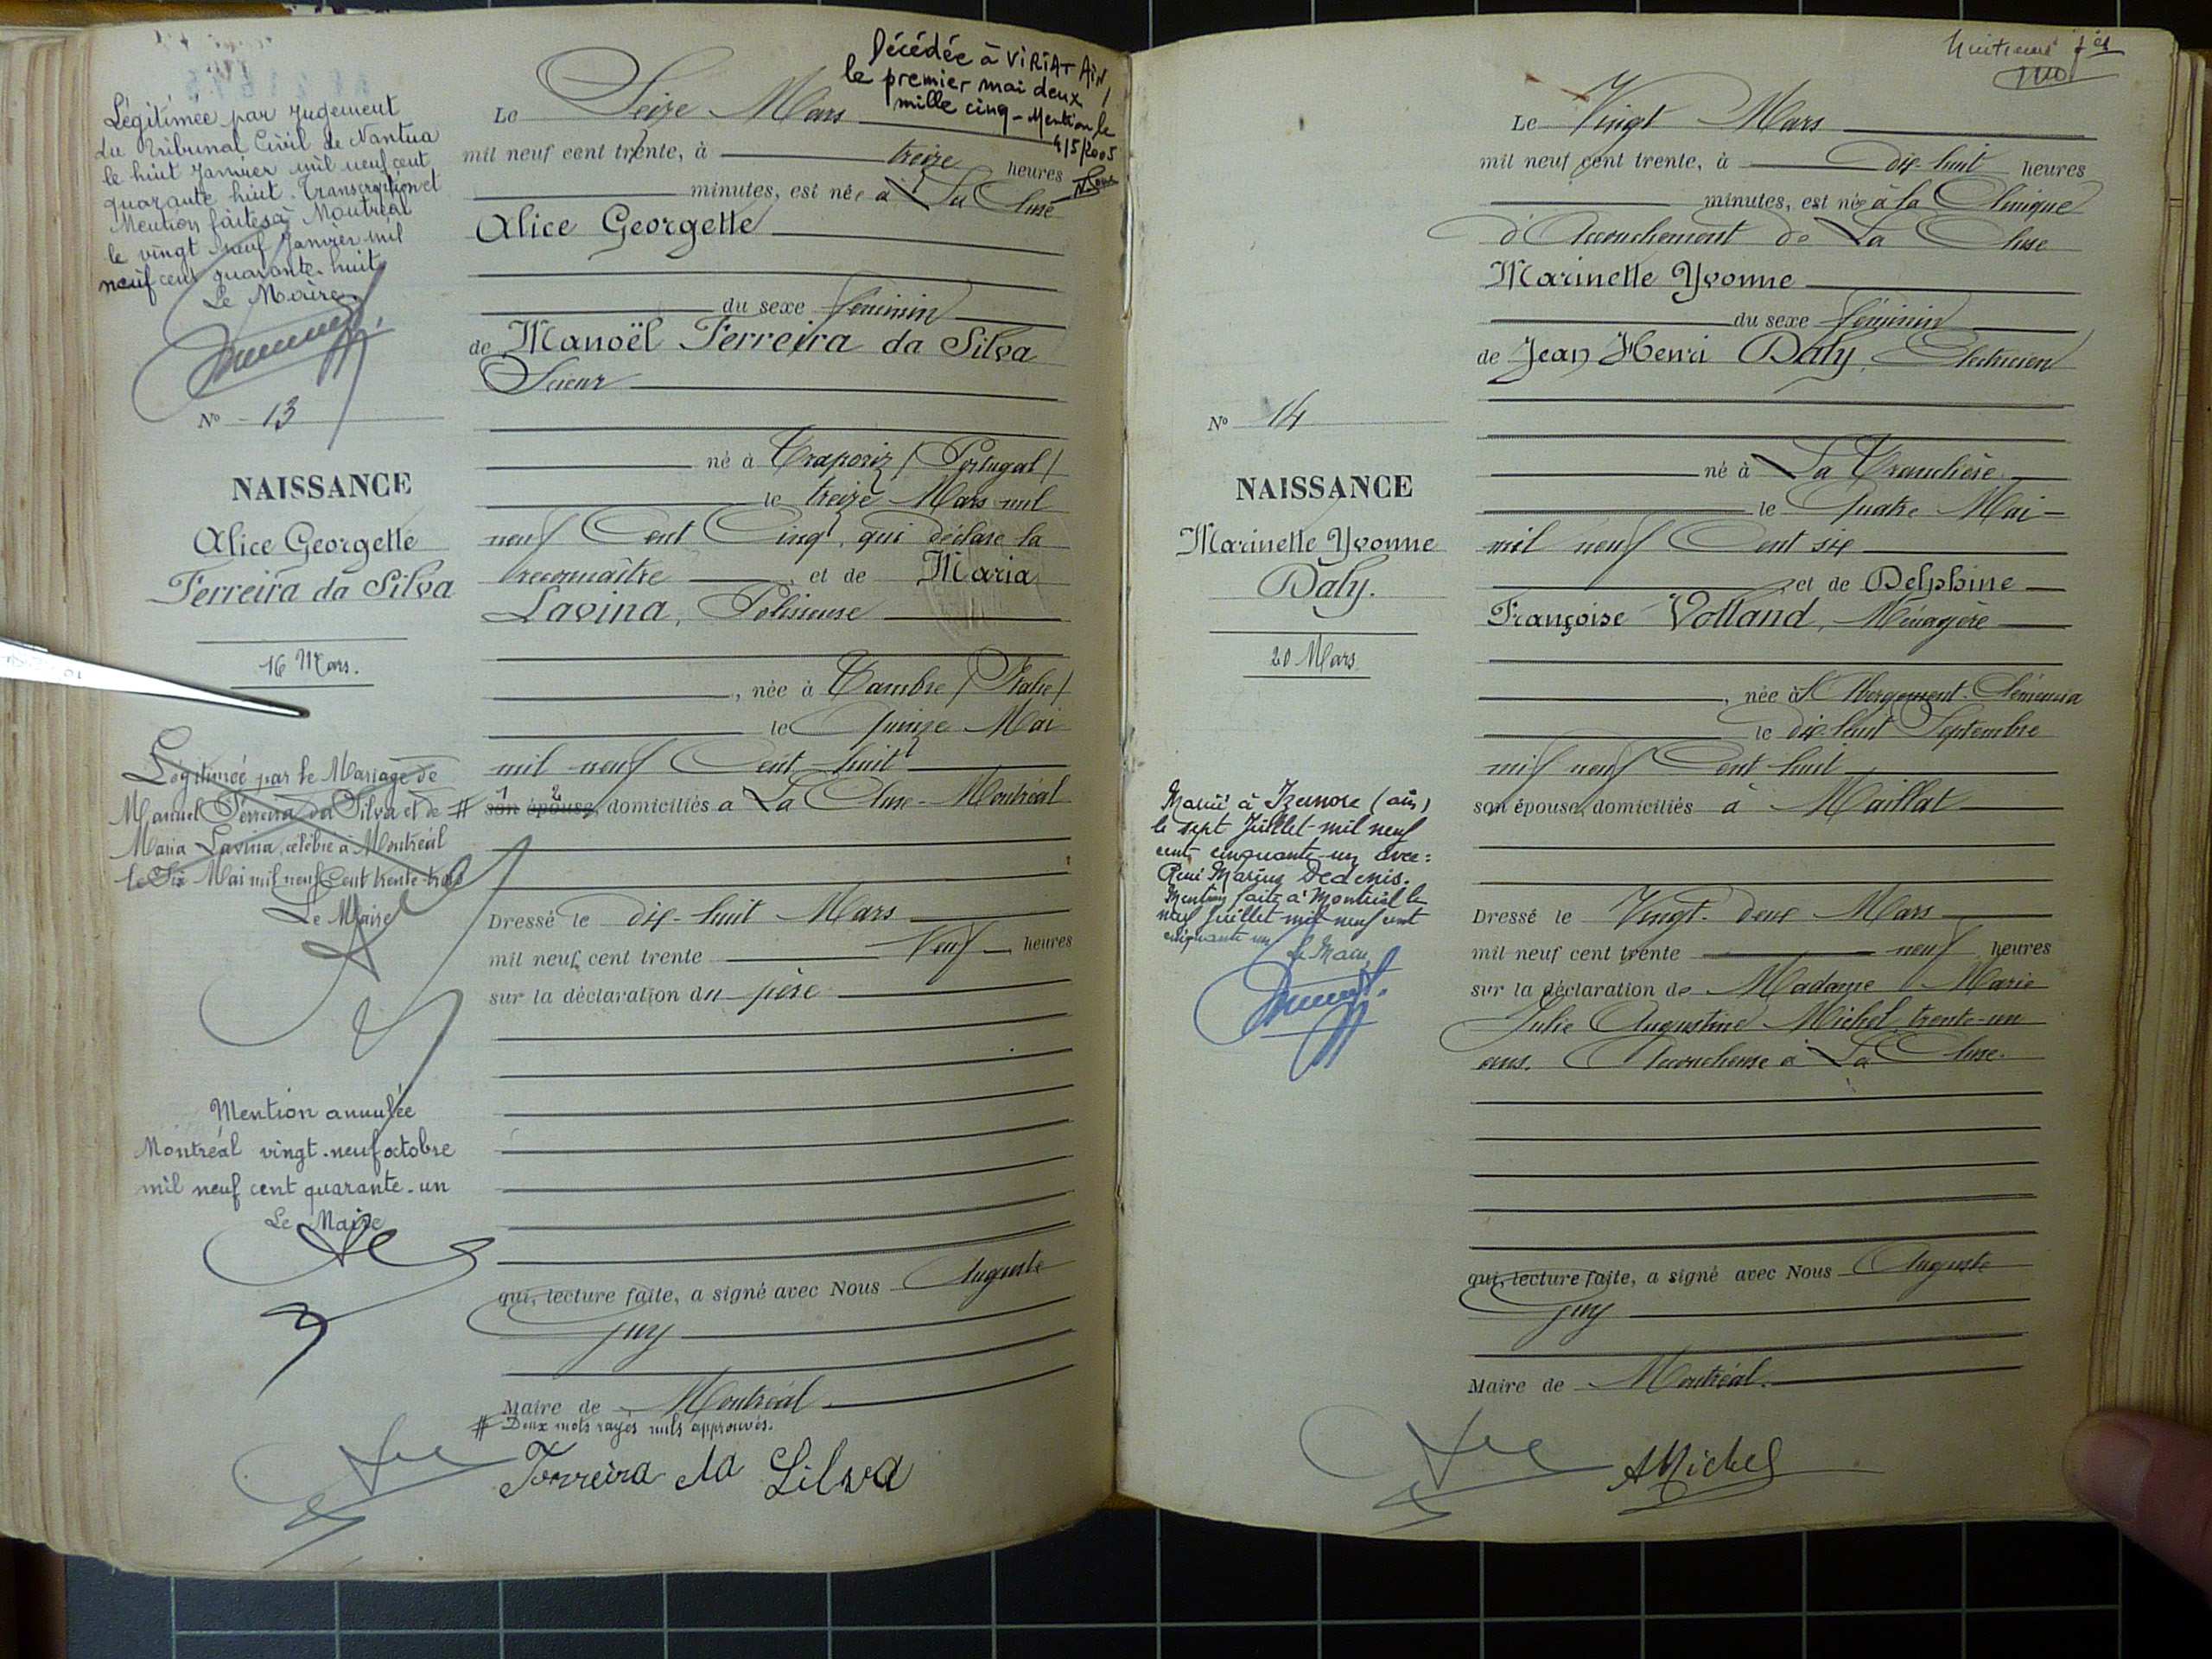 Légitimée par Jugement
du Tribunal Civil de Nantua
le huit Janvier mil neuf cent
quarante huit. Transcription et
Mention faites à Montréal
le vingt neuf Janvier mil
neuf cent quarante-huit
Le Maire.
No 13
NAISSANCE
Alice Georgette
Ferreira da Silva
16 Mars.
Légitimée par le Mariage de
Manuel Ferreira da Silva et de
Maria Lavina, célébré à Montréal
le Six Mai mil neuf Cent trente-trois
Le Maire
Mention annulée
Montréal vingt-neuf octobre
mil neuf cent quarante-un
Le Maire
Décédée à VIRIAT AIN
le premier mai deux
mille cinq - Mention le
4/5/2005
Le Seize Mars
mil neuf cent trente, à treize heures
minutes, est née à La Cluse
Alice Georgette
du sexe féminin
de Manoël Ferreira da Silva
Scieur
né à Traporiz (Portugal)
le treize Mars mil
neuf Cent Cinq, qui déclare la
reconnaître, et de Maria
Lavina, Polisseuse
, née à Tambre (Italie)
le Quinze Mai
mil neuf Cent huit
# son épouse, domiciliés à La Cluse-Montréal
1 2
Dressé le dix-huit Mars
mil neuf cent trente Neuf heures
sur la déclaration du père
qui, lecture faite, a signé avec Nous Auguste
Guy
Maire de Montréal
# Deux mots rayés nuls approuvés.
Ferreira da Silva
huitième f et
Le Vingt Mars
mil neuf cent trente, à Dix-huit heures
minutes, est née à la Clinique
d'Accouchement de La Cluse
Marinette Yvonne
du sexe féminin
de Jean Henri Daly, Electricien
né à La Tranchère
le Quatre Mai
mil neuf Cent six
, et de Delphine
Françoise Volland, Ménagère
, née à l'Abergement-Clémencia
le dix-huit Septembre
mil neuf Cent huit
son épouse, domiciliés à Maillat
Dressé le Vingt-deux Mars
mil neuf cent trente neuf heures
sur la déclaration de Madame Marie
Julie Augustine Michel trente-un
ans. Accoucheuse à La Cluse.
qui, lecture faite, a signé avec Nous Auguste
Guy
Maire de Montréal.
AMichel
No 14
NAISSANCE
Marinette Yvonne
Daly.
20 Mars
Marié à Izernore (ain)
le sept Juillet mil neuf
cent cinquante-un avec:
René Marius Dedenis.
Mention faite à Montréal le
neuf Juillet mil neuf cent
cinquante un
Le Maire